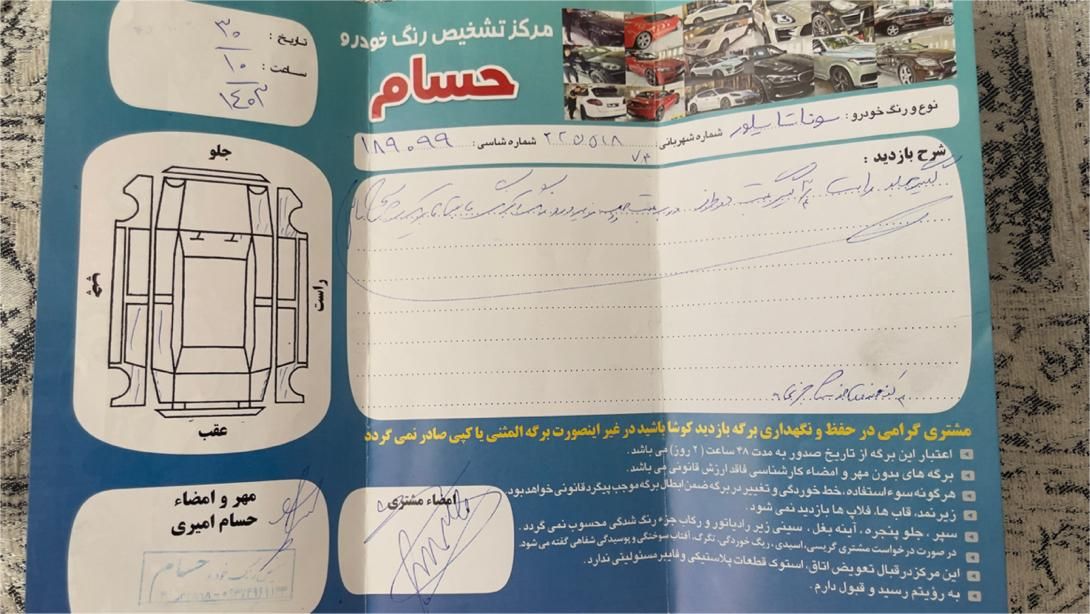 مرکز تشخیص رنگ خودرو
حسام
تاریخ : ۳۰
ساعت : ۱۰
۱۴۰۳
نوع و رنگ خودرو : سوناتا سیلور شماره شهربانی : ۲۲۵۵۱۸ شماره شاسی : ۱۸۹۰۹۹
۷۴
شرح بازدید :
جلو
راست
چپ
عقب
مشتری گرامی در حفظ و نگهداری برگه بازدید کوشا باشید در غیر اینصورت برگه المثنی یا کپی صادر نمی گردد
اعتبار این برگه از تاریخ صدور به مدت ۴۸ ساعت (۲ روز) می باشد.
برگه های بدون مهر و امضاء کارشناسی فاقد ارزش قانونی می باشد.
هرگونه سوء استفاده، خط خوردگی و تغییر در برگه ضمن ابطال برگه موجب پیگرد قانونی خواهد بود.
زیر نمد، قاب ها، فلاپ ها بازدید نمی شود.
سپر، جلو پنجره، آینه بغل، سینی زیر رادیاتور و رکاب جزء رنگ شدگی محسوب نمی گردد.
در صورت درخواست مشتری گریسی، اسیدی، رنگ خوردگی، تگرگ، آفتاب سوختگی و پوسیدگی شفاهی گفته می شود.
این مرکز در قبال تعویض اتاق، استوک قطعات پلاستیکی و فایبر مسئولیتی ندارد.
به رؤیتم رسید و قبول دارم.
امضاء مشتری
مهر و امضاء
حسام امیری
حسام